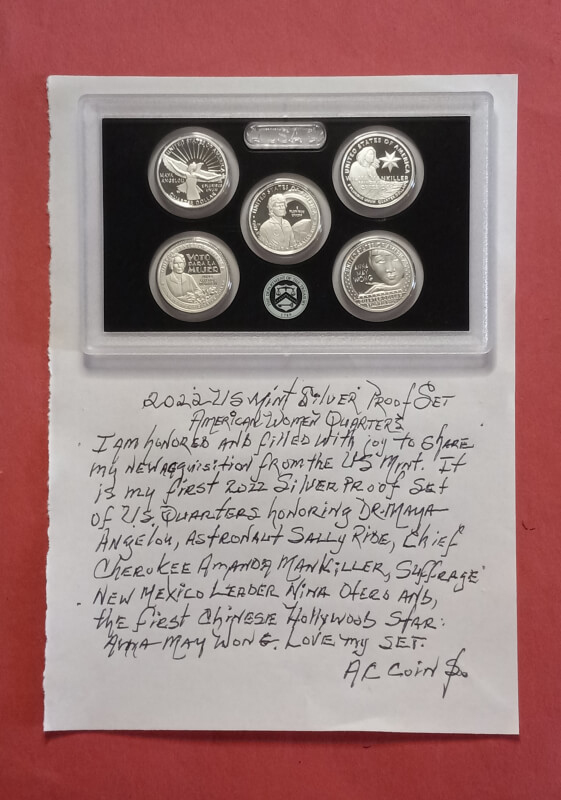 USA
MAYA ANGELOU
E PLURIBUS UNUM
QUARTER DOLLAR
UNITED STATES OF AMERICA
UNITED STATES OF AMERICA
NKILLER
VOTO
PARA LA
MUJER
ANNA
MAY
WONG
2022-US Mint Silver Proof Set
American Women Quarters
I am honored and filled with joy to share
my new acquisition from the US Mint. It
is my first 2022 Silver Proof Set
of U.S. Quarters honoring Dr. Maya
Angelou, Astronaut Sally Ride, Chief
Cherokee Amanda Mankiller, Suffrage
New Mexico Leader Nina Otero and,
the first Chinese Hollywood Star:
Anna May Wong. Love my set.
AC Coin $